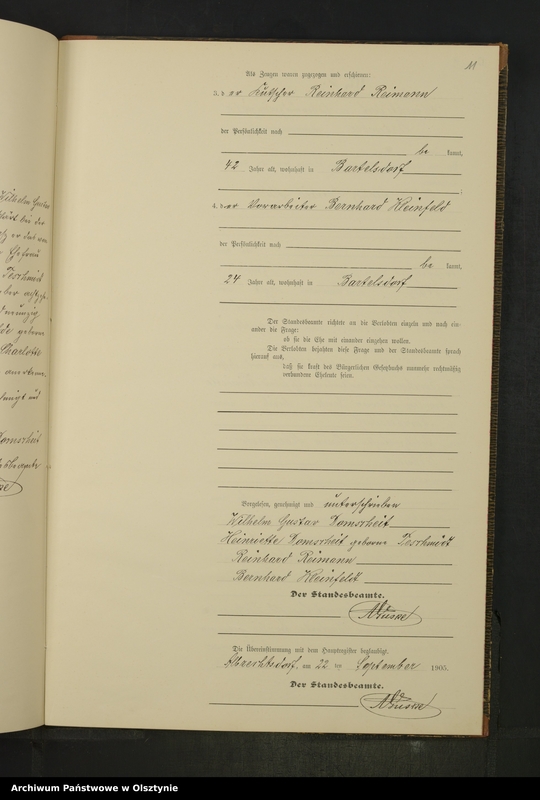 11
Als Zeugen waren zugezogen und erschienen:
3. der Kutscher Reinhard Reimann
der Persönlichkeit nach
be kannt,
42 Jahre alt, wohnhaft in Bartelsdorf
4. der Vorarbeiter Bernhard Kleinfeld
der Persönlichkeit nach
be kannt,
24 Jahre alt, wohnhaft in Bartelsdorf
Der Standesbeamte richtete an die Verlobten einzeln und nach ein-
ander die Frage:
ob sie die Ehe mit einander eingehen wollen.
Die Verlobten bejahten diese Frage und der Standesbeamte sprach
hierauf aus,
daß sie kraft des Bürgerlichen Gesetzbuchs nunmehr rechtmäßig
verbundene Eheleute seien.
Vorgelesen, genehmigt und unterschrieben
Wilhelm Gustav Domscheit
Heinriette Domscheit geborne
Reinhard Reimann
Bernhard Kleinfeldt
Der Standesbeamte.
Die Übereinstimmung mit dem Hauptregister beglaubigt.
Albrechtsdorf, am 22 ten September 1905.
Der Standesbeamte.
Wilhelm Gustav
Ehefrau
Charlotte
Domscheit
Archiwum Państwowe w Olsztynie